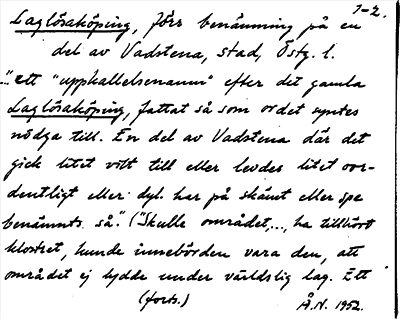 1-2.
Laglösaköping, förr benämning på en
del av Vadstena, stad, Östg. l.
"...ett "uppkallelsenamn" efter det gamla
Laglösaköping, fattat så som ordet syntes
nödga till. En del av Vadstena där det
gick litet vilt till eller levdes litet oor-
dentligt eller dyl. har på skämt eller spe
benämnts så." ("Skulle området,..., ha tillhört
klostret, kunde innebörden vara den, att
området ej lydde under världslig lag. Ett
(forts.) Å.N. 1952.